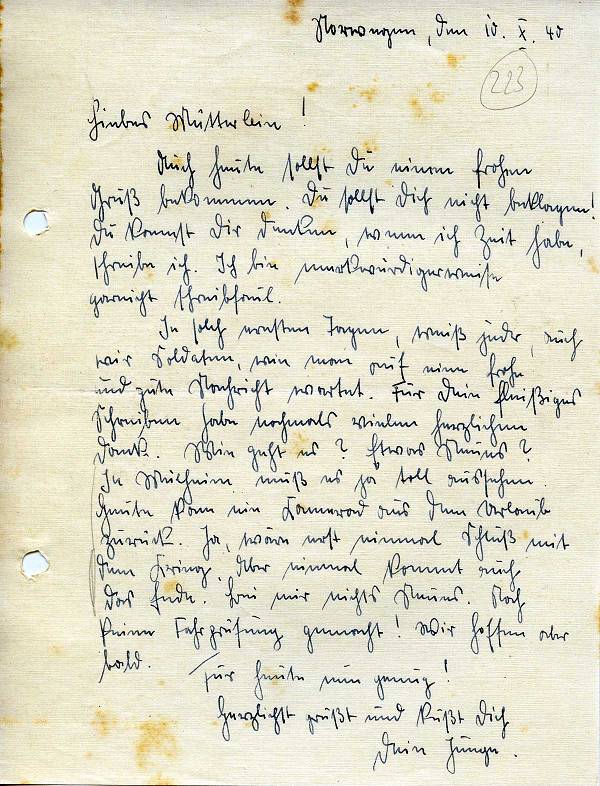 Norwegen, den 10. X. 40
223
Liebes Mütterlein!
Auch heute sollst Du einen frohen
Gruß bekommen. Du sollst Dich nicht beklagen!
Du kannst Dir denken, wenn ich Zeit habe,
schreibe ich. Ich bin merkwürdigerweise
garnicht schreibfaul.
In solch ernsten Tagen, weiß jeder, auch
wir Soldaten, wie man auf eine frohe
und gute Nachricht wartet. Für Dein fleißiges
Schreiben habe nochmals vielen herzlichen
Dank. Wie geht es? Etwas Neues?
In Mülheim muß es ja toll aussehen.
Heute kam ein Kamerad aus dem Urlaub
zurück. Ja, wäre erst einmal Schluß mit
dem Krieg. Aber einmal kommt auch
das Ende. Bei mir nichts Neues. Noch
keine Fahrprüfung gemacht! Wir hoffen aber
bald.
Für heute nun genug!
Herzlichst grüßt und küßt Dich
Dein Junge.